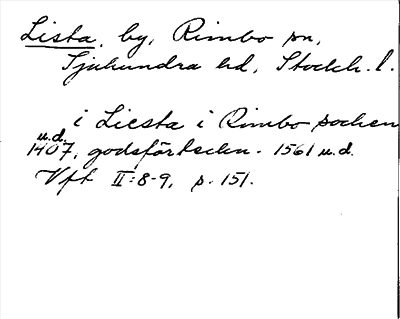 Lista, by, Rimbo sn,
Sjuhundra hd, Stockh. l.
i Liesta i Rimbo sochen
u.d.
1407, godsförteckn. 1561 u.d.
Vft II:8-9, p. 151.